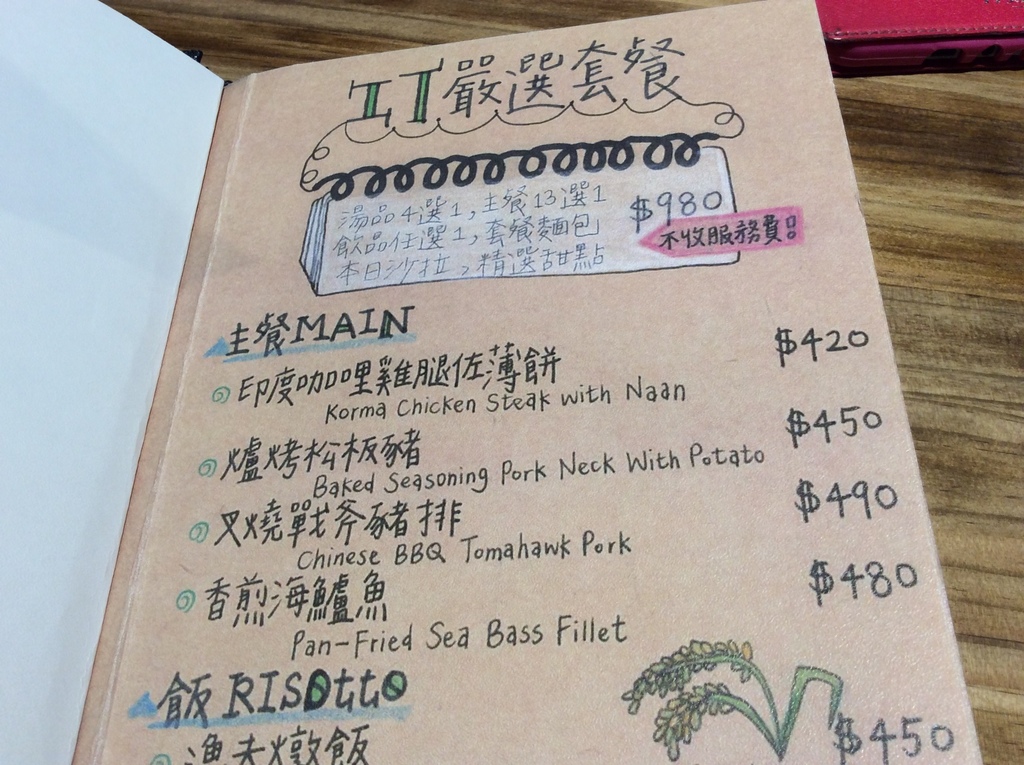 IT嚴選套餐
湯品4選1,主餐13選1
飲品任選1,套餐麵包
本日沙拉,精選甜點
$980
不收服務費!!
主餐MAIN
印度咖哩雞腿佐薄餅 $420
Korma Chicken Steak with Naan
爐烤松板豬 $450
Baked Seasoning Pork Neck With Potato
叉燒戰斧豬排 $490
Chinese BBQ Tomahawk Pork
香煎海鱸魚 $480
Pan-Fried Sea Bass Fillet
飯RISOttO
漁夫燉飯 $450